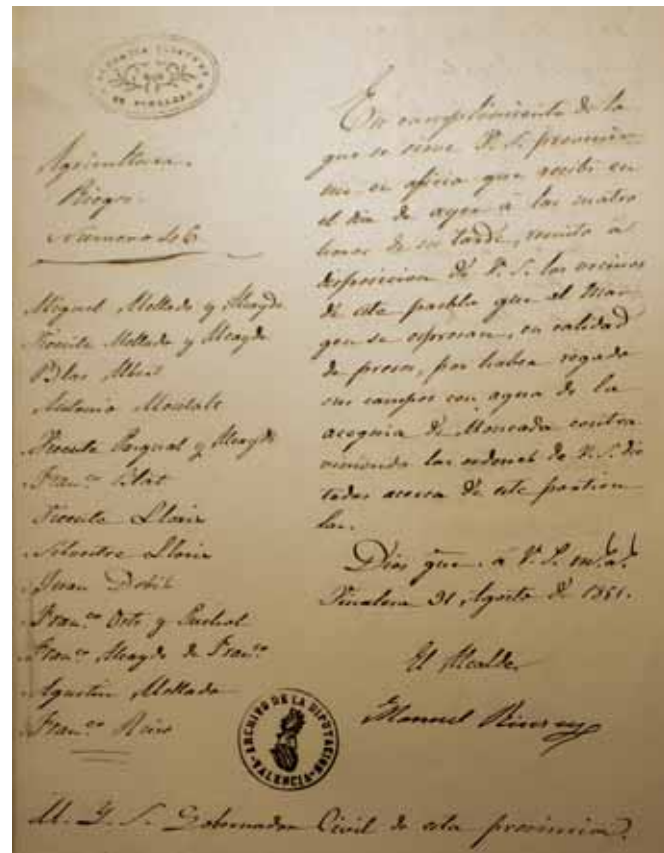 Agricultura
Riegos
Numero 46
Miguel Mellado y Alcayde
Vicente Mellado y Alcayde
Blas Albert
Antonio Montalt
Vicente Pasqual y Alcayde
Fran.co Blat
Vicente Lloris
Silvestre Lloris
Juan
Fran.co y
Fran.co Alcayde de Fran.co
Agustin Mellado
Fran.co
En cumplimiento de lo
que se sirve V. S. prevenir
me en oficio que recibí en
el dia de ayer á las cuatro
horas de su tarde, remito á
disposicion de V. S. los vecinos
de este pueblo que al mar
gen se espresan, en calidad
de presos, por haber regado
sus campos con agua de la
acequia de Moncada contra
viniendo las ordenes de V. S. dic
tadas acerca de este particu
lar.
Dios gue. á V. S. m.s a.s
31, Agosto de 1861.
El Alcalde
Manuel
ARCHIVO DE LA DIPUTACION
VALENCIA
M. Y. S. Gobernador Civil de esta provincia.